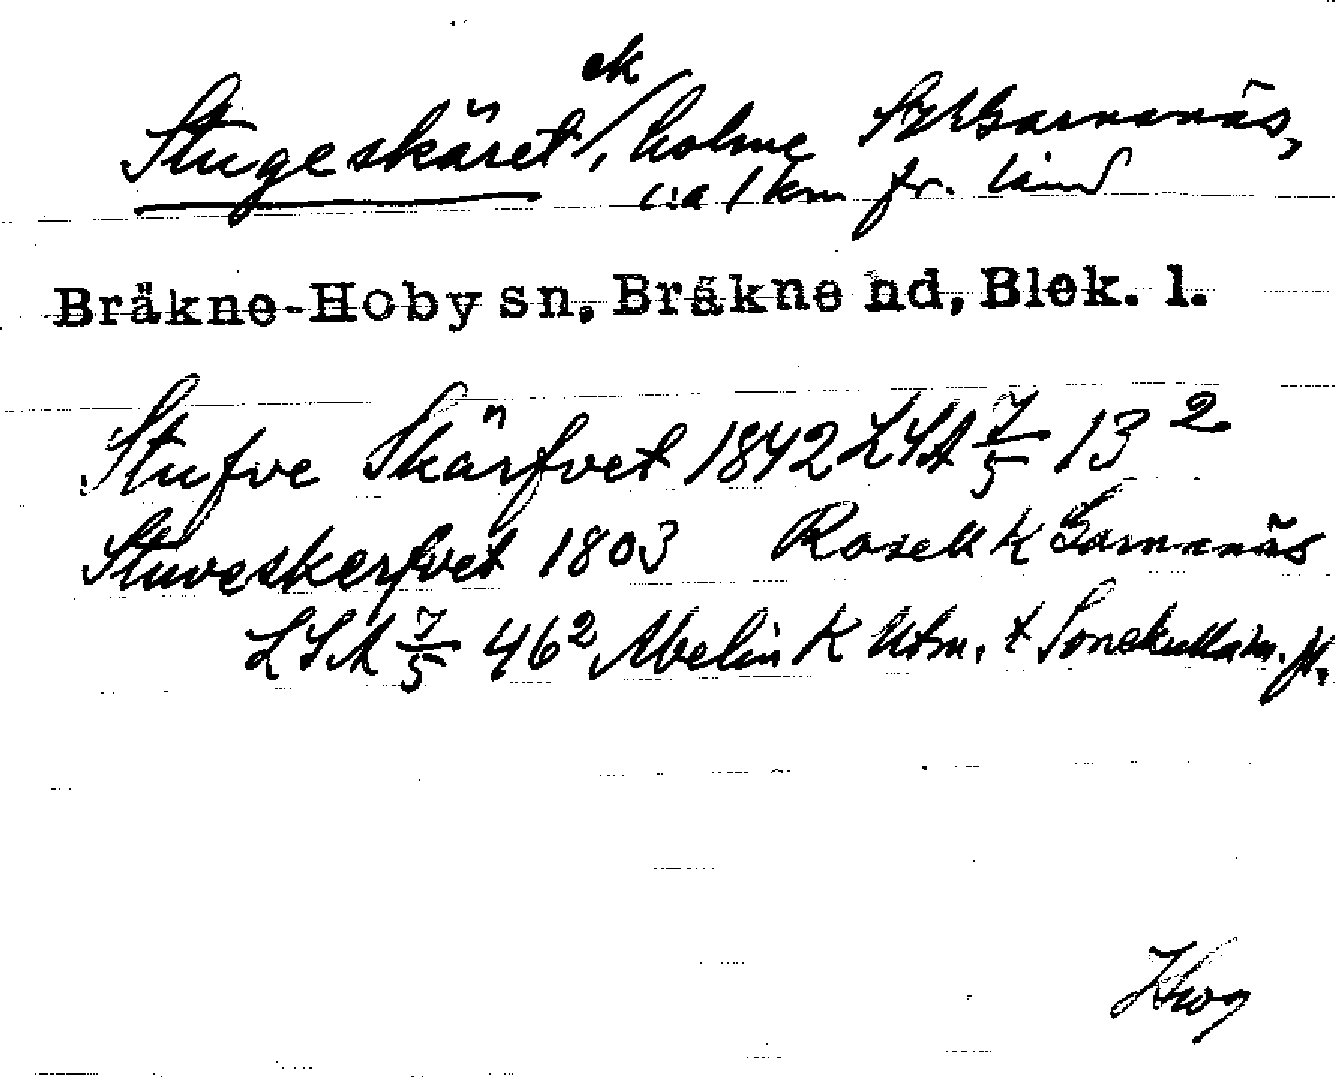 ek
Stugeskäret, holme SV Garnanäs,
ca 1 km fr. land
Bräkne-Hoby sn, Bräkne hd, Blek. l.
Stufve Skärfvet 1842 LSA 7/5 13²
Stuveskerfvet 1803 Rosell K Garnanäs
LSA 7/5 46² Abelin K Utm. t Sonekulla m. fl.